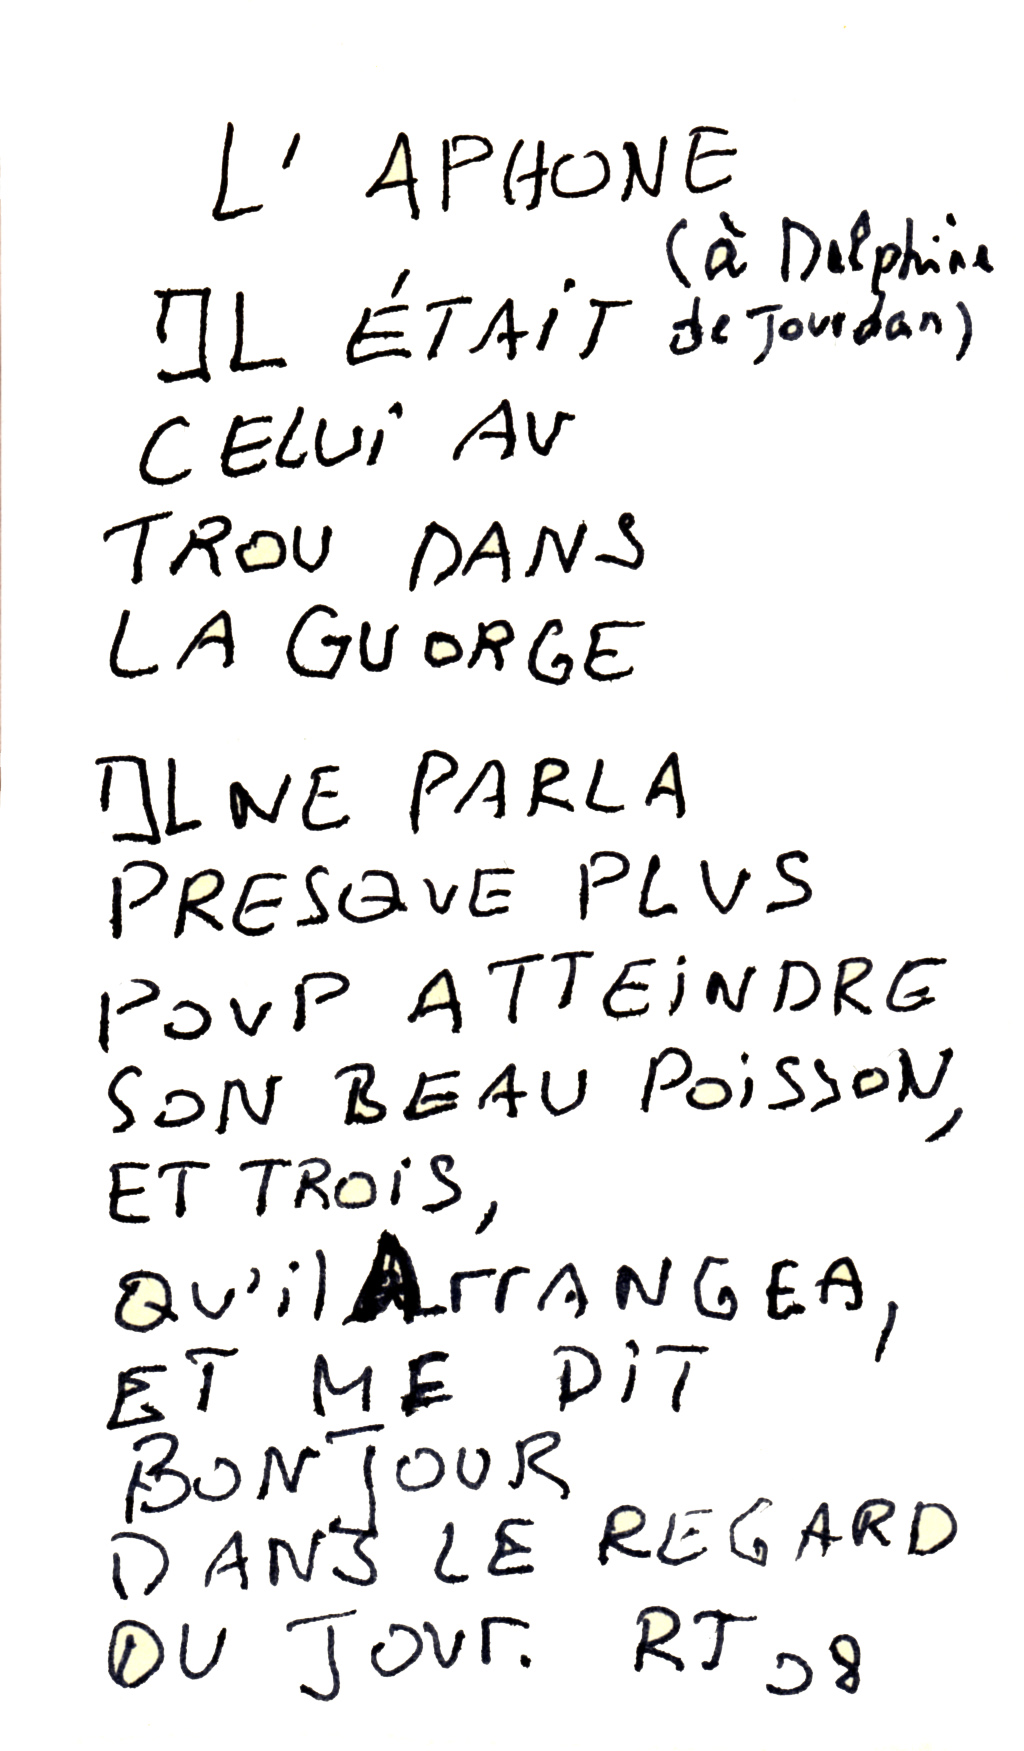 L' APHONE
(à Delphine
de Jourdan)
IL ÉTAiT
CELUi AU
TROU DANS
LA GUORGE
IL NE PARLA
PRESQUE PLUS
POUP ATTEiNDRE
SON BEAU POiSSON,
ET TROiS,
QU'il ArrANGEA,
ET ME DiT
BONJOUR
DANS LE REGARD
DU JOUr. RJ 08